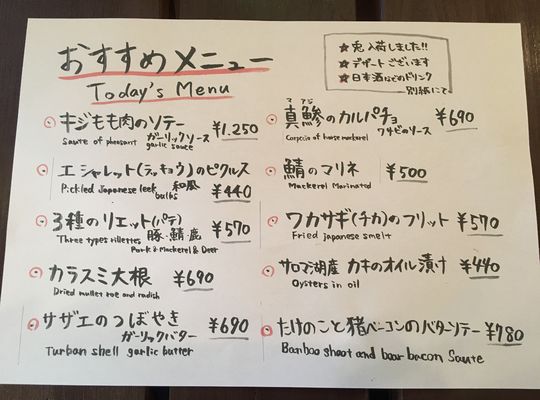 おすすめメニュー
Today's Menu
★兎入荷しました!!
★デザートございます
★日本酒などのドリンク
別紙にて
キジもも肉のソテー ガーリックソース ¥1.250
Saute of pheasant garlic sauce
エシャレット(ラッキョウ)のピクルス
Pickled Japanese leek bulbs 和風 ¥440
3種のリエット(パテ) 豚・鯖・鹿 ¥570
Three types rillettes Pork & Mackerel & Deer
カラスミ大根 ¥690
Dried mullet roe and radish
サザエのつぼやき ガーリックバター ¥690
Turban shell garlic butter
マ アジ
真鯵のカルパチョ ワサビのソース ¥690
Carpaccio of horse mackerel
鯖のマリネ ¥500
Mackerel Marinated
ワカサギ(チカ)のフリット ¥570
Fried Japanese smelt
サロマ湖産 カキのオイル漬け ¥440
Oysters in oil
たけのこと猪ベーコンのバターソテー ¥780
Banboo shoot and boar bacon Saute